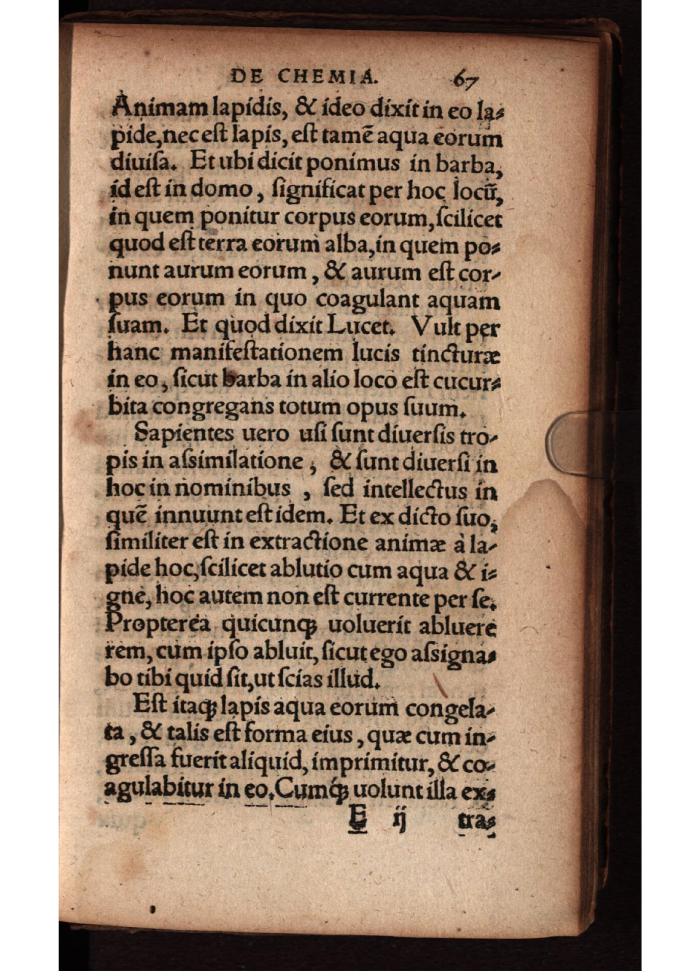 DE CHEMIA. 67
Animam lapidis, & ideo dixit in eo la-
pide, nec est lapis, est tamē aqua eorum
diuisa. Et ubi dicit ponimus in barba,
id est in domo, significat per hoc locū,
in quem ponitur corpus eorum, scilicet
quod est terra eorum alba, in quem po-
nunt aurum eorum, & aurum est cor-
pus eorum in quo coagulant aquam
suam. Et quod dixit Lucet. Vult per
hanc manifestationem lucis tincturæ
in eo, sicut barba in alio loco est cucur-
bita congregans totum opus suum.
Sapientes uero usi sunt diuersis tro-
pis in assimilatione, & sunt diuersi in
hoc in nominibus, sed intellectus in
quē innuunt est idem. Et ex dicto suo,
similiter est in extractione animæ à la-
pide hoc, scilicet ablutio cum aqua & i-
gne, hoc autem non est currente per se.
Propterea quicunq; uoluerit abluere
rem, cum ipso abluit, sicut ego assigna-
bo tibi quid sit, ut scias illud.
Est itaq; lapis aqua eorum congela-
ta, & talis est forma eius, quæ cum in-
gressa fuerit aliquid, imprimitur, & co-
agulabitur in eo. Cumq; uolunt illa ex-
E ij tra-